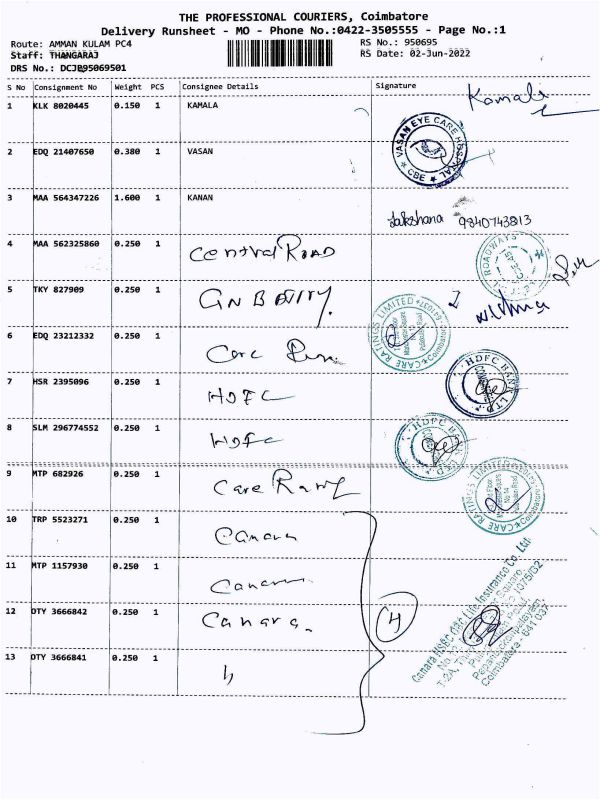 THE PROFESSIONAL COURIERS, Coimbatore
Delivery Runsheet - MO - Phone No.:0422-3505555 - Page No.:1
Route: AMMAN KULAM PC4 RS No.: 950695
Staff: THANGARAJ RS Date: 02-Jun-2022
DRS No.: DCJE95069501
S No Consignment No Weight PCS Consignee Details Signature
1 KLK 8020445 0.150 1 KAMALA Kamala
2 EDQ 21407650 0.380 1 VASAN VASAN EYE CARE HOSPITAL ★ CBE ★
3 MAA 564347226 1.600 1 KANAN Lakshana 9840743813
4 MAA 562325860 0.250 1 Central ROAD ROADWAYS
5 TKY 827909 0.250 1
6 EDQ 23212332 0.250 1 Care CARE RATINGS LIMITED Coimbatore
7 HSR 2395096 0.250 1 HDFC HDFC BANK LTD.
8 SLM 296774552 0.250 1 HDFC HDFC BANK LTD.
9 MTP 682926 0.250 1 Care CARE RATINGS LIMITED Coimbatore
10 TRP 5523271 0.250 1 Canara
11 MTP 1157930 0.250 1 Canara
12 OTY 3666842 0.250 1 Canara. 4
13 OTY 3666841 0.250 1 "
Canara HSBC OBC Life Insurance Co. Ltd
Coimbatore - 641 037